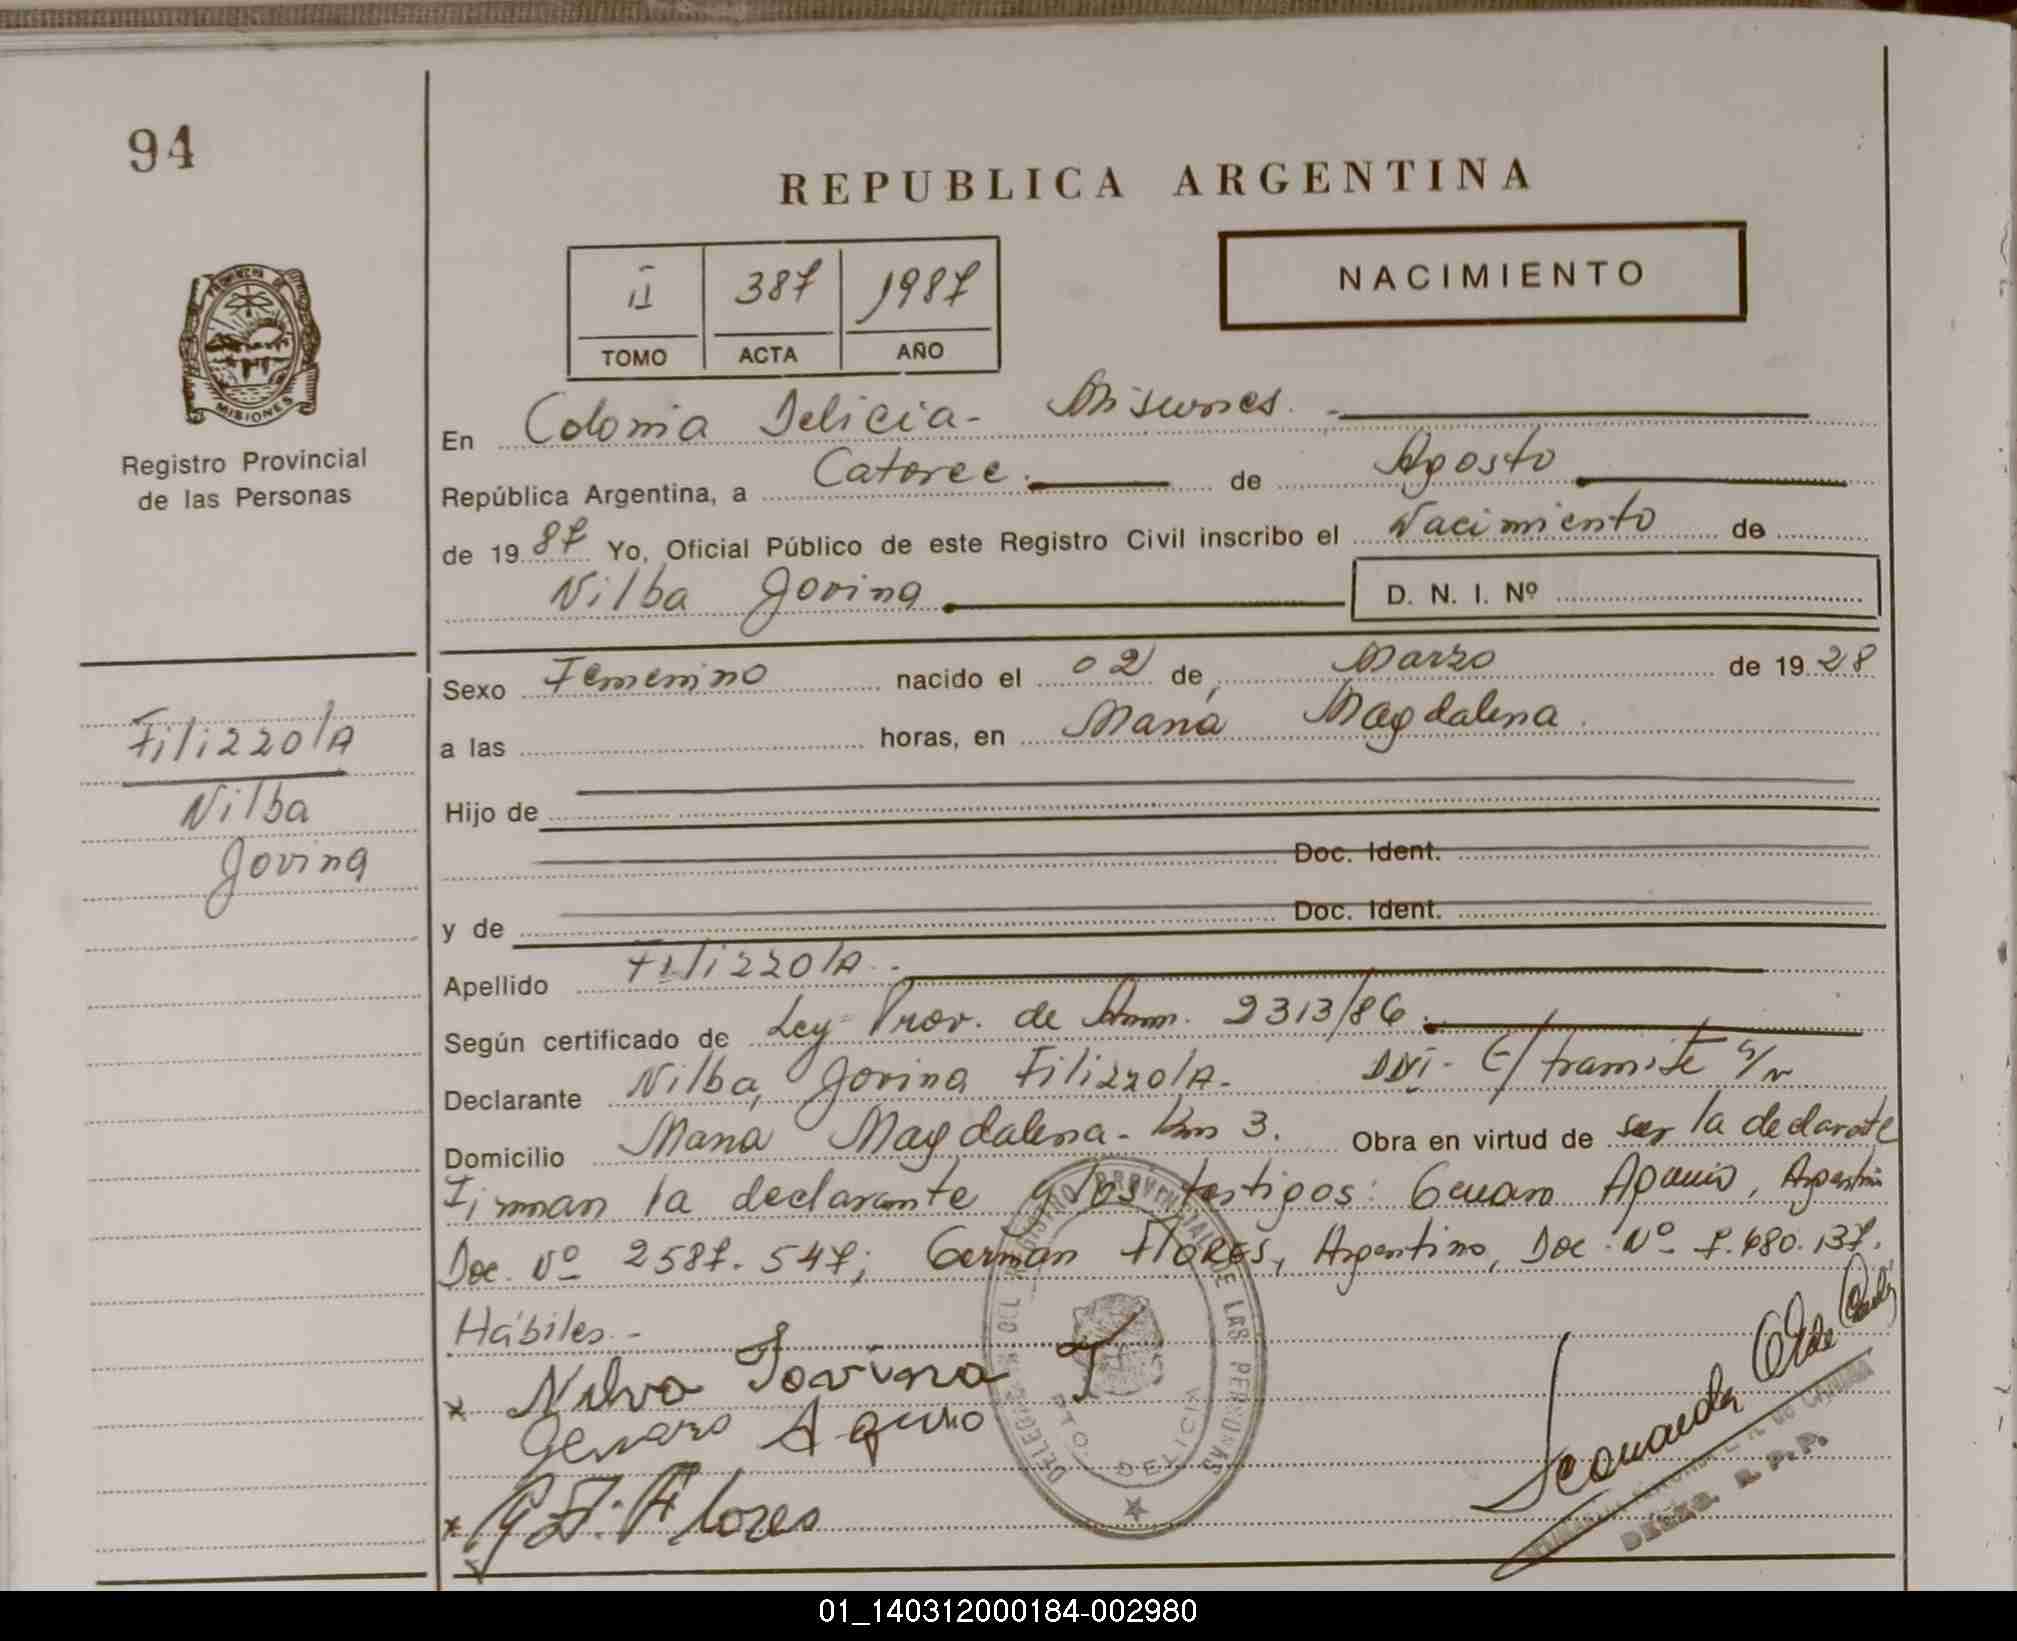 94
REPUBLICA ARGENTINA
II 387 1987
TOMO ACTA AÑO
NACIMIENTO
MISIONES
Registro Provincial
de las Personas
En Colonia Delicia - Misiones. -
República Argentina, a Catorce. de Agosto
de 1987 Yo, Oficial Público de este Registro Civil inscribo el Nacimiento de
Nilba Jovina D. N. I. Nº
Sexo Femenino nacido el 02 de Marzo de 1928
a las horas, en Maria Magdalena.
Hijo de
Doc. Ident.
y de Doc. Ident.
Filizzola
Nilba
Jovina
Apellido Filizzola. -
Según certificado de Ley Prov. de Amn. 2313/86.
Declarante Nilba, Jovina Filizzola. DNI - E/ tramite S/N
Domicilio Maria Magdalena - Km 3. Obra en virtud de ser la declarate
Firman la declarante y los testigos: Genaro Aquino, Argentin
Doc. Nº 2587.547; German Flores, Argentino, Doc. Nº 7.680.137.
Hábiles. -
x Nilva Jovina F
Genaro Aquino
x G. F. Flores
DELEG DEL REGISTRO PROVINCIAL DE LAS PERSONAS
PTO. DELICIA
DELEG. R. P. P.
01_140312000184-002980